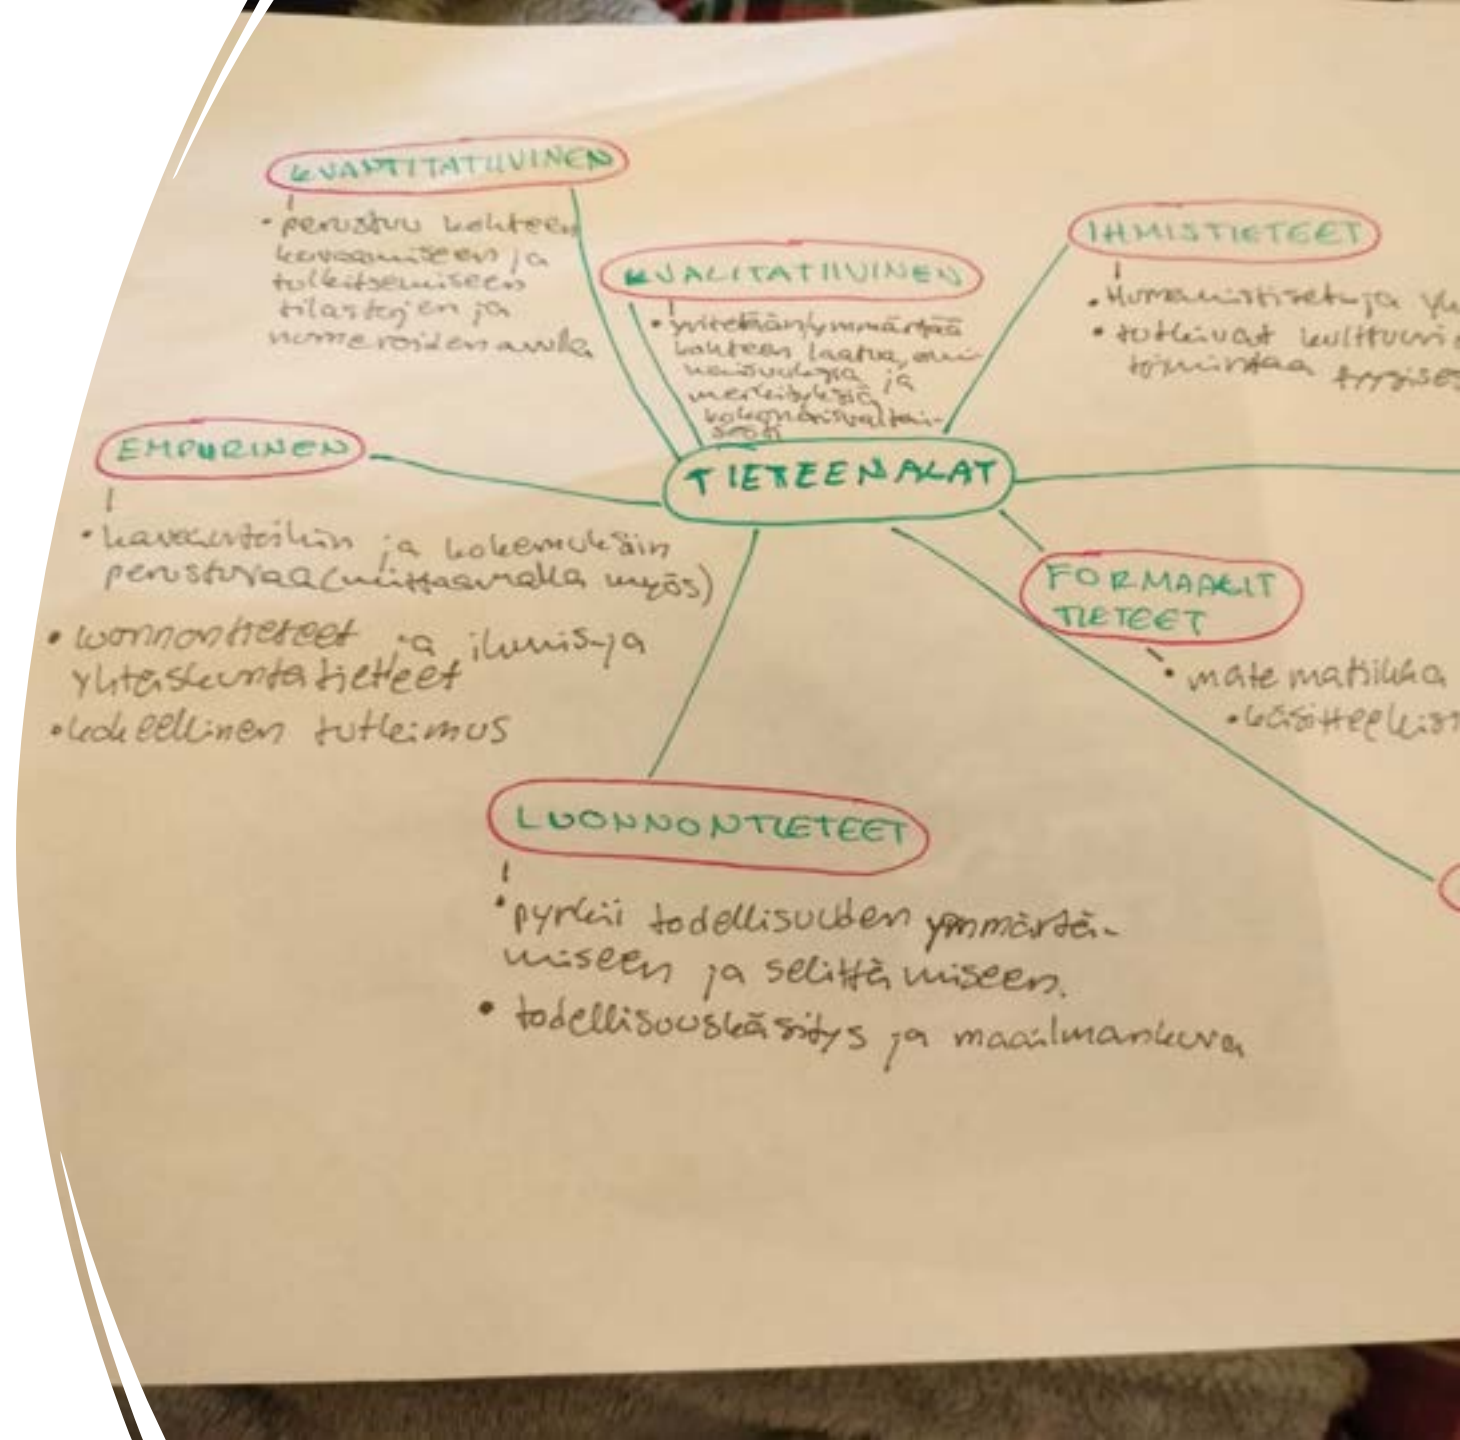 KVANTITATIIVINEN
• perustuu kohteen
kuvaamiseen ja
tulkitsemiseen
tilastojen ja
numeroiden avulla
KVALITATIIVINEN
• yritetään ymmärtää
kohteen laatua, omi-
naisuuksia ja
merkityksiä
kokonaisvaltai-
sesti
IHMISTIETEET
• Humanistiset ja
• tutkivat kulttuuri
toimintaa
EMPIIRINEN
• havaintoihin ja kokemuksiin
perustuvaa (mittaamalla myös)
• luonnontieteet ja ihmis- ja
yhteiskuntatieteet
• kokeellinen tutkimus
TIETEENALAT
FORMAALIT
TIETEET
• matematiikka
LUONNONTIETEET
• pyrkii todellisuuden ymmärtä-
miseen ja selittämiseen.
• todellisuuskäsitys ja maailmankuva